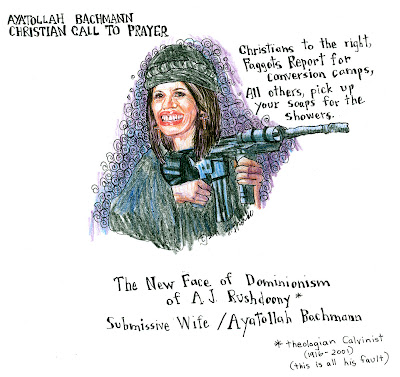 AYATOLLAH BACHMANN
CHRISTIAN CALL TO PRAYER
Christians to the right,
Faggots Report for
conversion camps,
All others, pick up
your soaps for the
showers.
The New Face of Dominionism
of A.J. Rushdoony *
Submissive Wife / Ayatollah Bachmann
* theologian Calvinist
(1916-2001)
(this is all his fault)